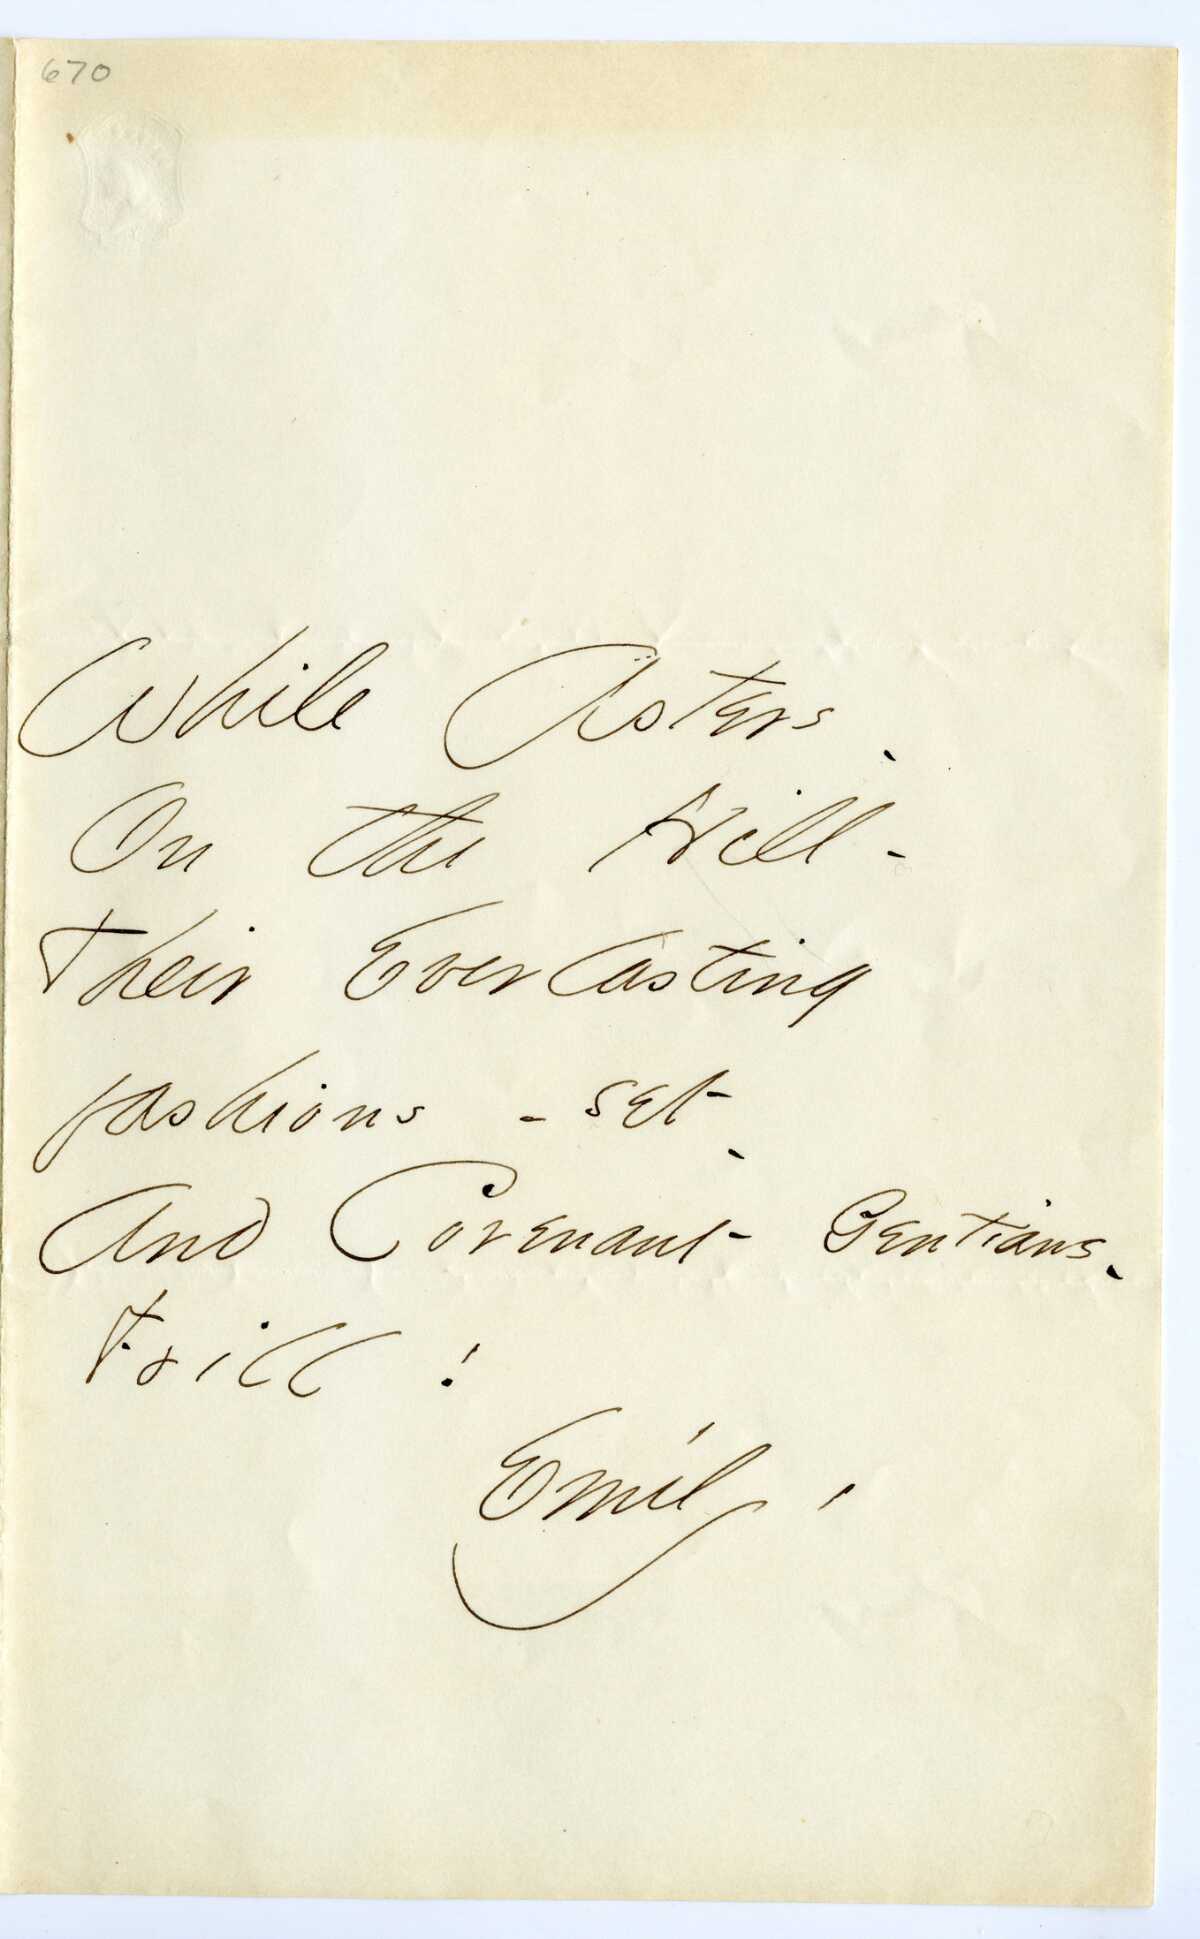 670
While Asters -
On the Hill -
Their Everlasting
fashions - set -
And Covenant Gentians -
Frill !
Emily -